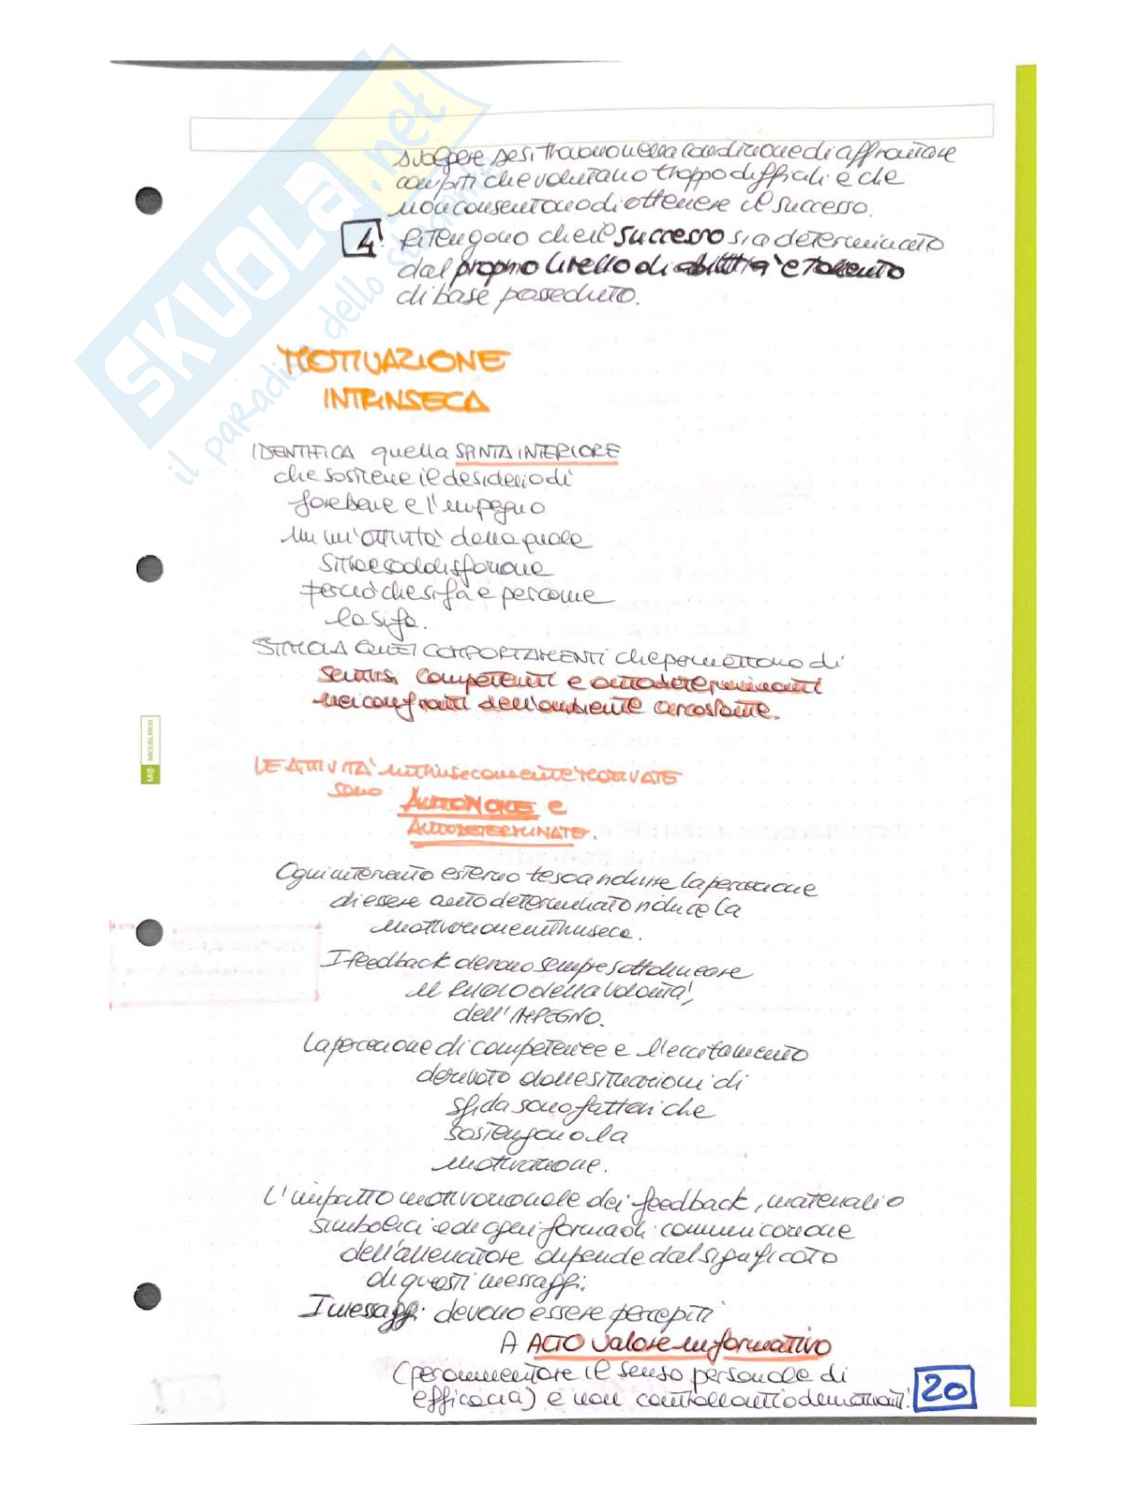 svolgere se si trovano nella condizione di affrontare
compiti che valutano troppo difficili e che
non consentono di ottenere il successo.
4 Ritengono che il successo sia determinato
dal proprio livello di abilità e talento
di base posseduto.
MOTIVAZIONE
INTRINSECA
IDENTIFICA quella SPINTA INTERIORE
che sostiene il desiderio di
fare bene e l'impegno
in un'attività dalla quale
si trae soddisfazione
per ciò che si fa e per come
lo si fa.
STIMOLA QUEI COMPORTAMENTI che permettono di
sentirsi competenti e autodeterminanti
nei confronti dell'ambiente circostante.
LE ATTIVITÀ intrinsecamente MOTIVATE
sono AUTONOME e
AUTODETERMINATE.
Ogni intervento esterno teso a ridurre la percezione
di essere autodeterminato riduce la
motivazione intrinseca.
I feedback devono sempre sottolineare
il RUOLO della volontà,
dell'IMPEGNO.
La percezione di competenze e l'eccitamento
derivato dalle situazioni di
sfida sono fattori che
sostengono la
motivazione.
L'impatto motivazionale dei feedback, materiali o
simbolici e di ogni forma di comunicazione
dell'allenatore dipende dal significato
di questi messaggi.
I messaggi devono essere percepiti
A ALTO valore informativo
(per aumentare il senso personale di
efficacia) e non controllanti o demotivanti.
20
SKUOLA.net
il paradiso dello